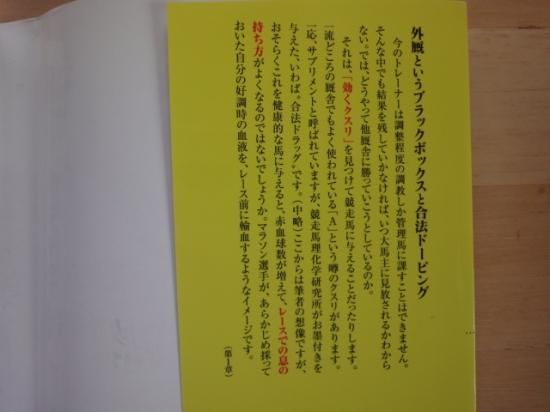 外厩というブラックボックスと合法ドーピング
今のトレーナーは調整程度の調教しか管理馬に課すことはできません。
そんな中でも結果を残していかなければ、いつ大馬主に見放されるかわから
ない。では、どうやって他厩舎に勝っていこうとしているのか。
それは、「効くクスリ」を見つけて競走馬に与えることだったりします。
一流どころの厩舎でもよく使われている「A」という噂のクスリがあります。
一応、サプリメントと呼ばれていますが、競走馬理化学研究所がお墨付きを
与えた、いわば〝合法ドラッグ〟です。（中略）ここからは筆者の想像ですが、
おそらくこれを健康的な馬に与えると、赤血球数が増えて、レースでの息の
持ち方がよくなるのではないでしょうか。マラソン選手が、あらかじめ採って
おいた自分の好調時の血液を、レース前に輸血するようなイメージです。
（第1章）